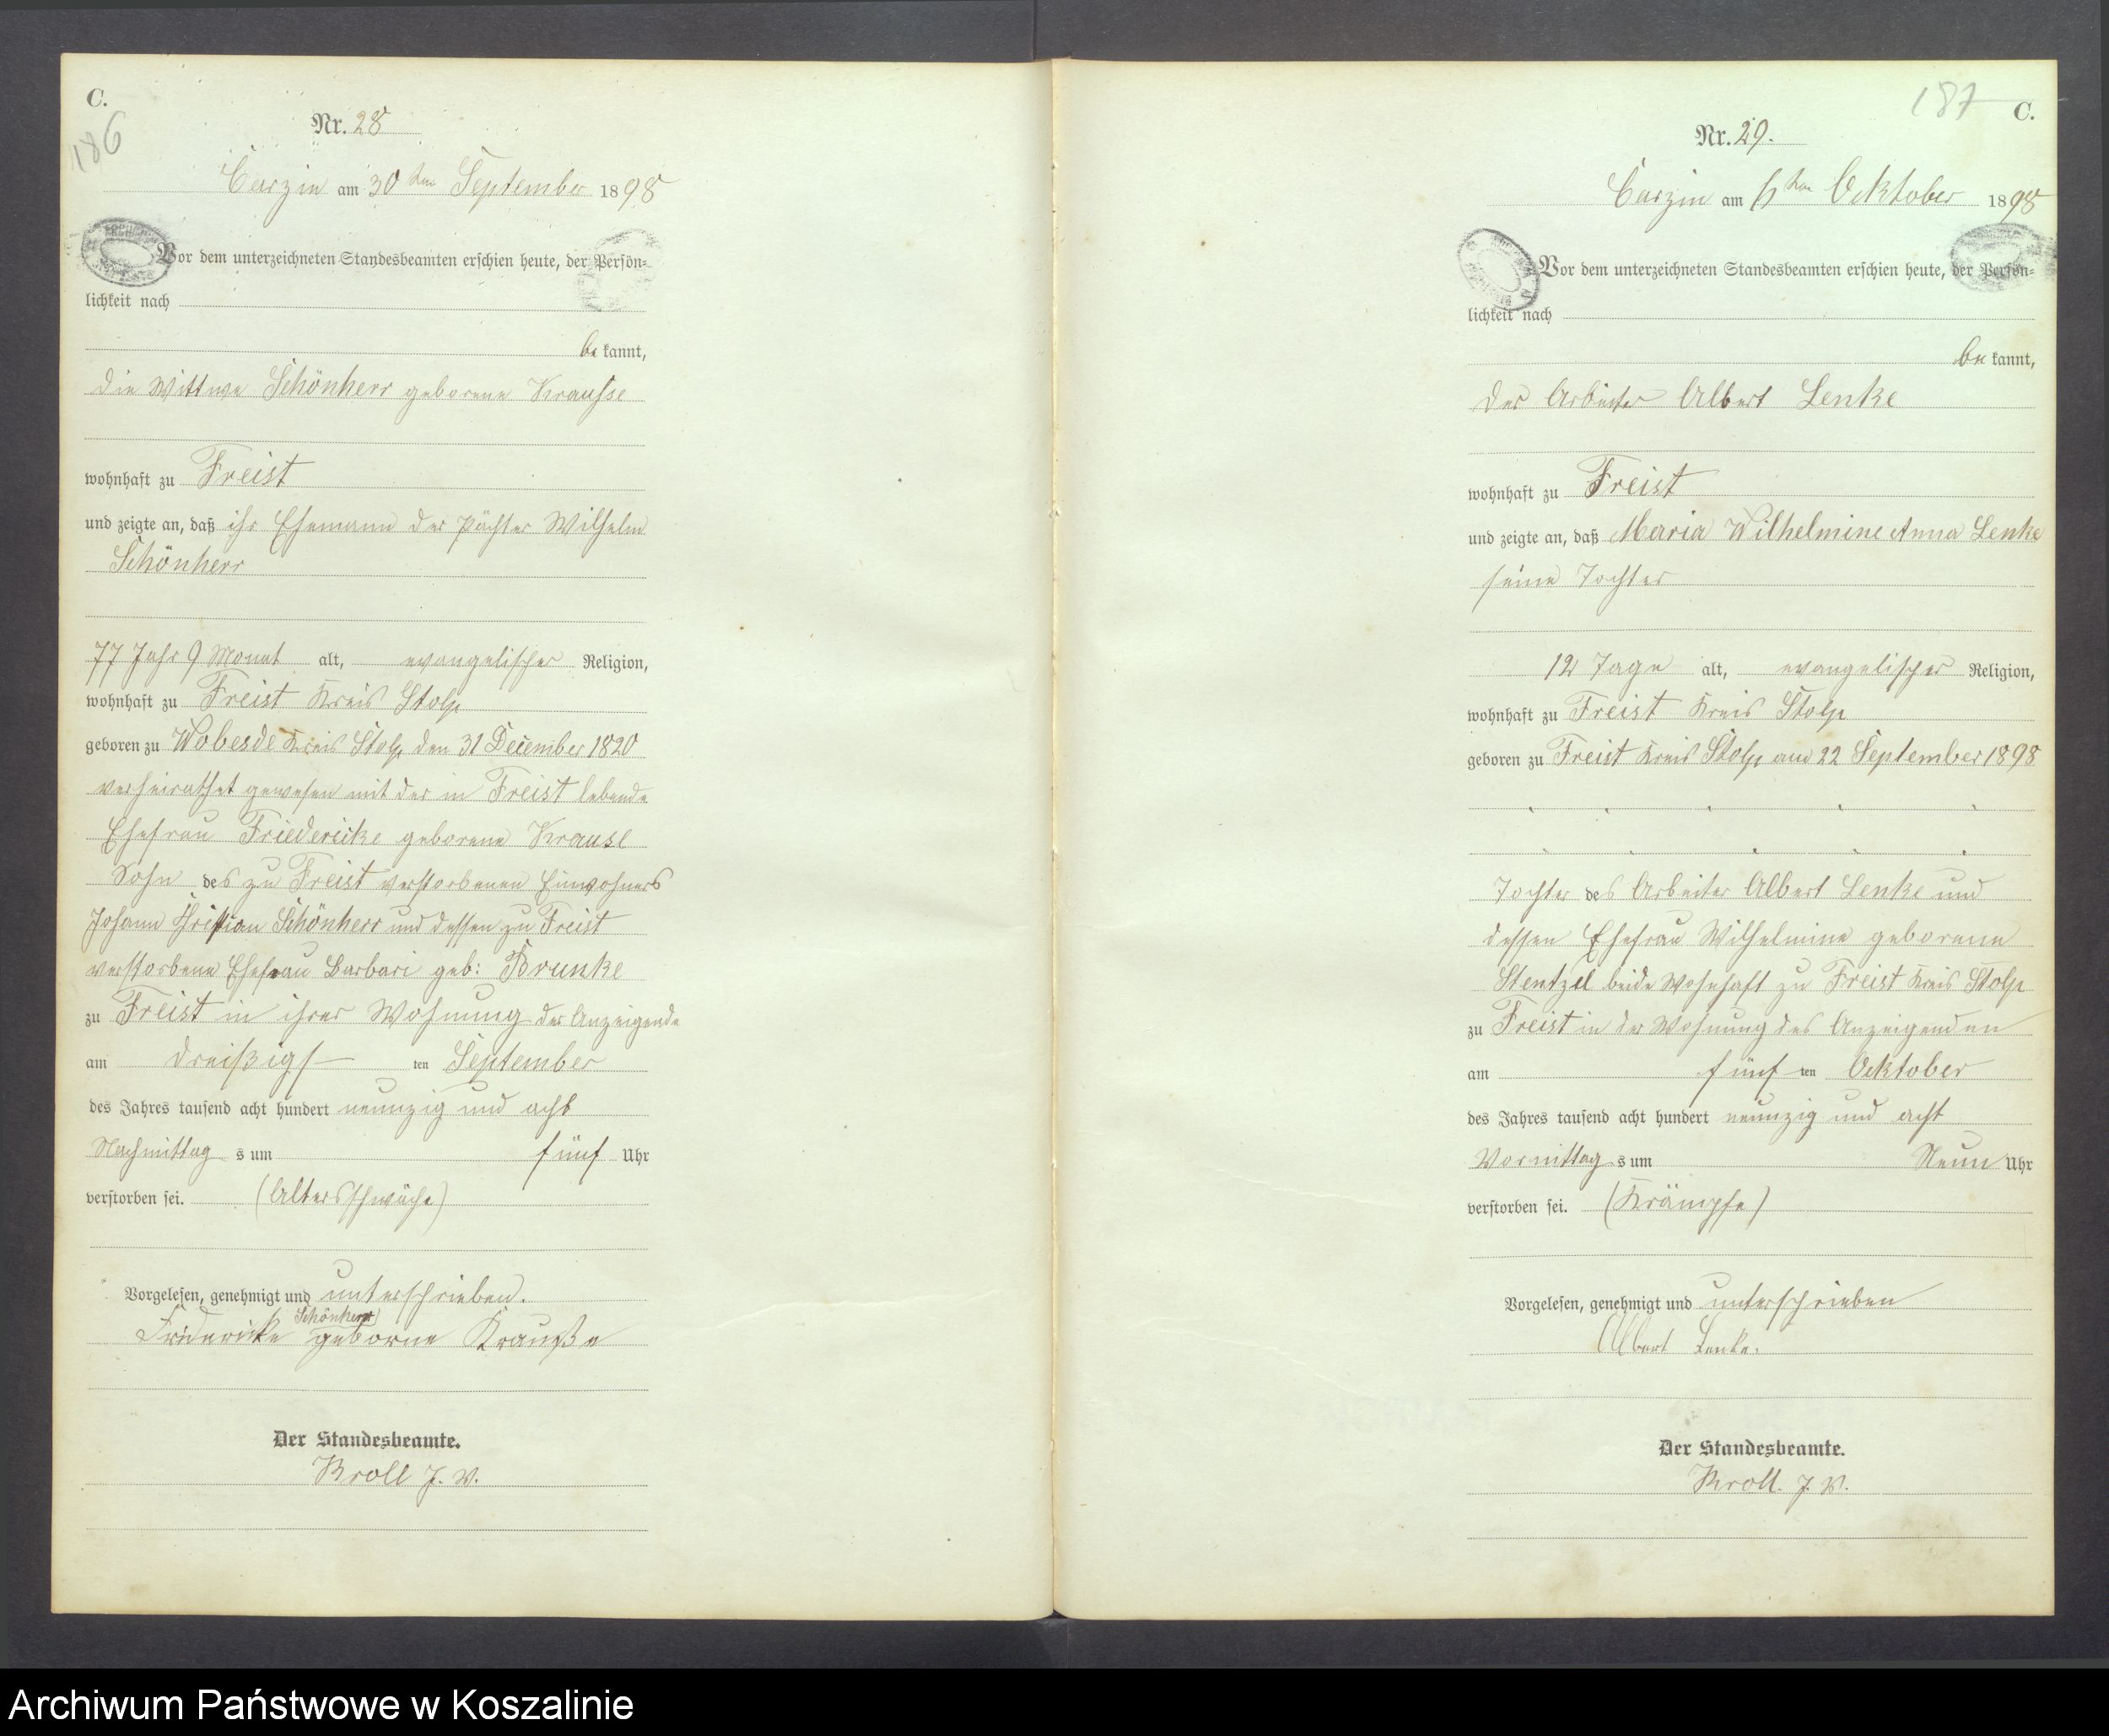 C.
186
Nr. 28
Carzin am 30ten September 1898
Vor dem unterzeichneten Standesbeamten erschien heute, der Persön-
lichkeit nach
be kannt,
die Wittwe Schönherr geborene Krausse
wohnhaft zu Freist
und zeigte an, daß ihr Ehemann der Pächter Wilhelm
Schönherr
77 Jahr 9 Monat alt, evangelischer Religion,
wohnhaft zu Freist Kreis Stolp
geboren zu Wobesde Kreis Stolp den 31 December 1820
verheirathet gewesen mit der in Freist lebende
Ehefrau Friedericke geborene Krause
Sohn des zu Freist verstorbenen Einwohners
Johann Christian Schönherr und dessen zu Freist
verstorbene Ehefrau Barbari geb: Brunke
zu Freist in ihrer Wohnung der Anzeigende
am dreißigs ten September
des Jahres tausend acht hundert neunzig und acht
Nachmittag s um fünf Uhr
verstorben sei. (Altersschwäche)
Vorgelesen, genehmigt und unterschrieben.
Schönherr
Fridericke geborne Kraußse
Der Standesbeamte.
Kroll J. V.
187
C.
Nr. 29.
Carzin am 6ten Ocktober 1898
Vor dem unterzeichneten Standesbeamten erschien heute, der Persön-
lichkeit nach
be kannt,
der Arbeiter Albert Lenke
wohnhaft zu Freist
und zeigte an, daß Maria Wilhelmine Anna Lenke
seine Tochter
12 Tage alt, evangelischer Religion,
wohnhaft zu Freist Kreis Stolp
geboren zu Freist Kreis Stolp am 22 September 1898
Tochter des Arbeiter Albert Lenke und
dessen Ehefrau Wilhelmine geborene
Stentzel beide wohnhaft zu Freist Kreis Stolp
zu Freist in der Wohnung des Anzeigenden
am fünf ten Ocktober
des Jahres tausend acht hundert neunzig und acht
Vormittag s um Neun Uhr
verstorben sei. (Krämpfe)
Vorgelesen, genehmigt und unterschrieben
Albert Lenke.
Der Standesbeamte.
Kroll. J. V.
Archiwum Państwowe w Koszalinie